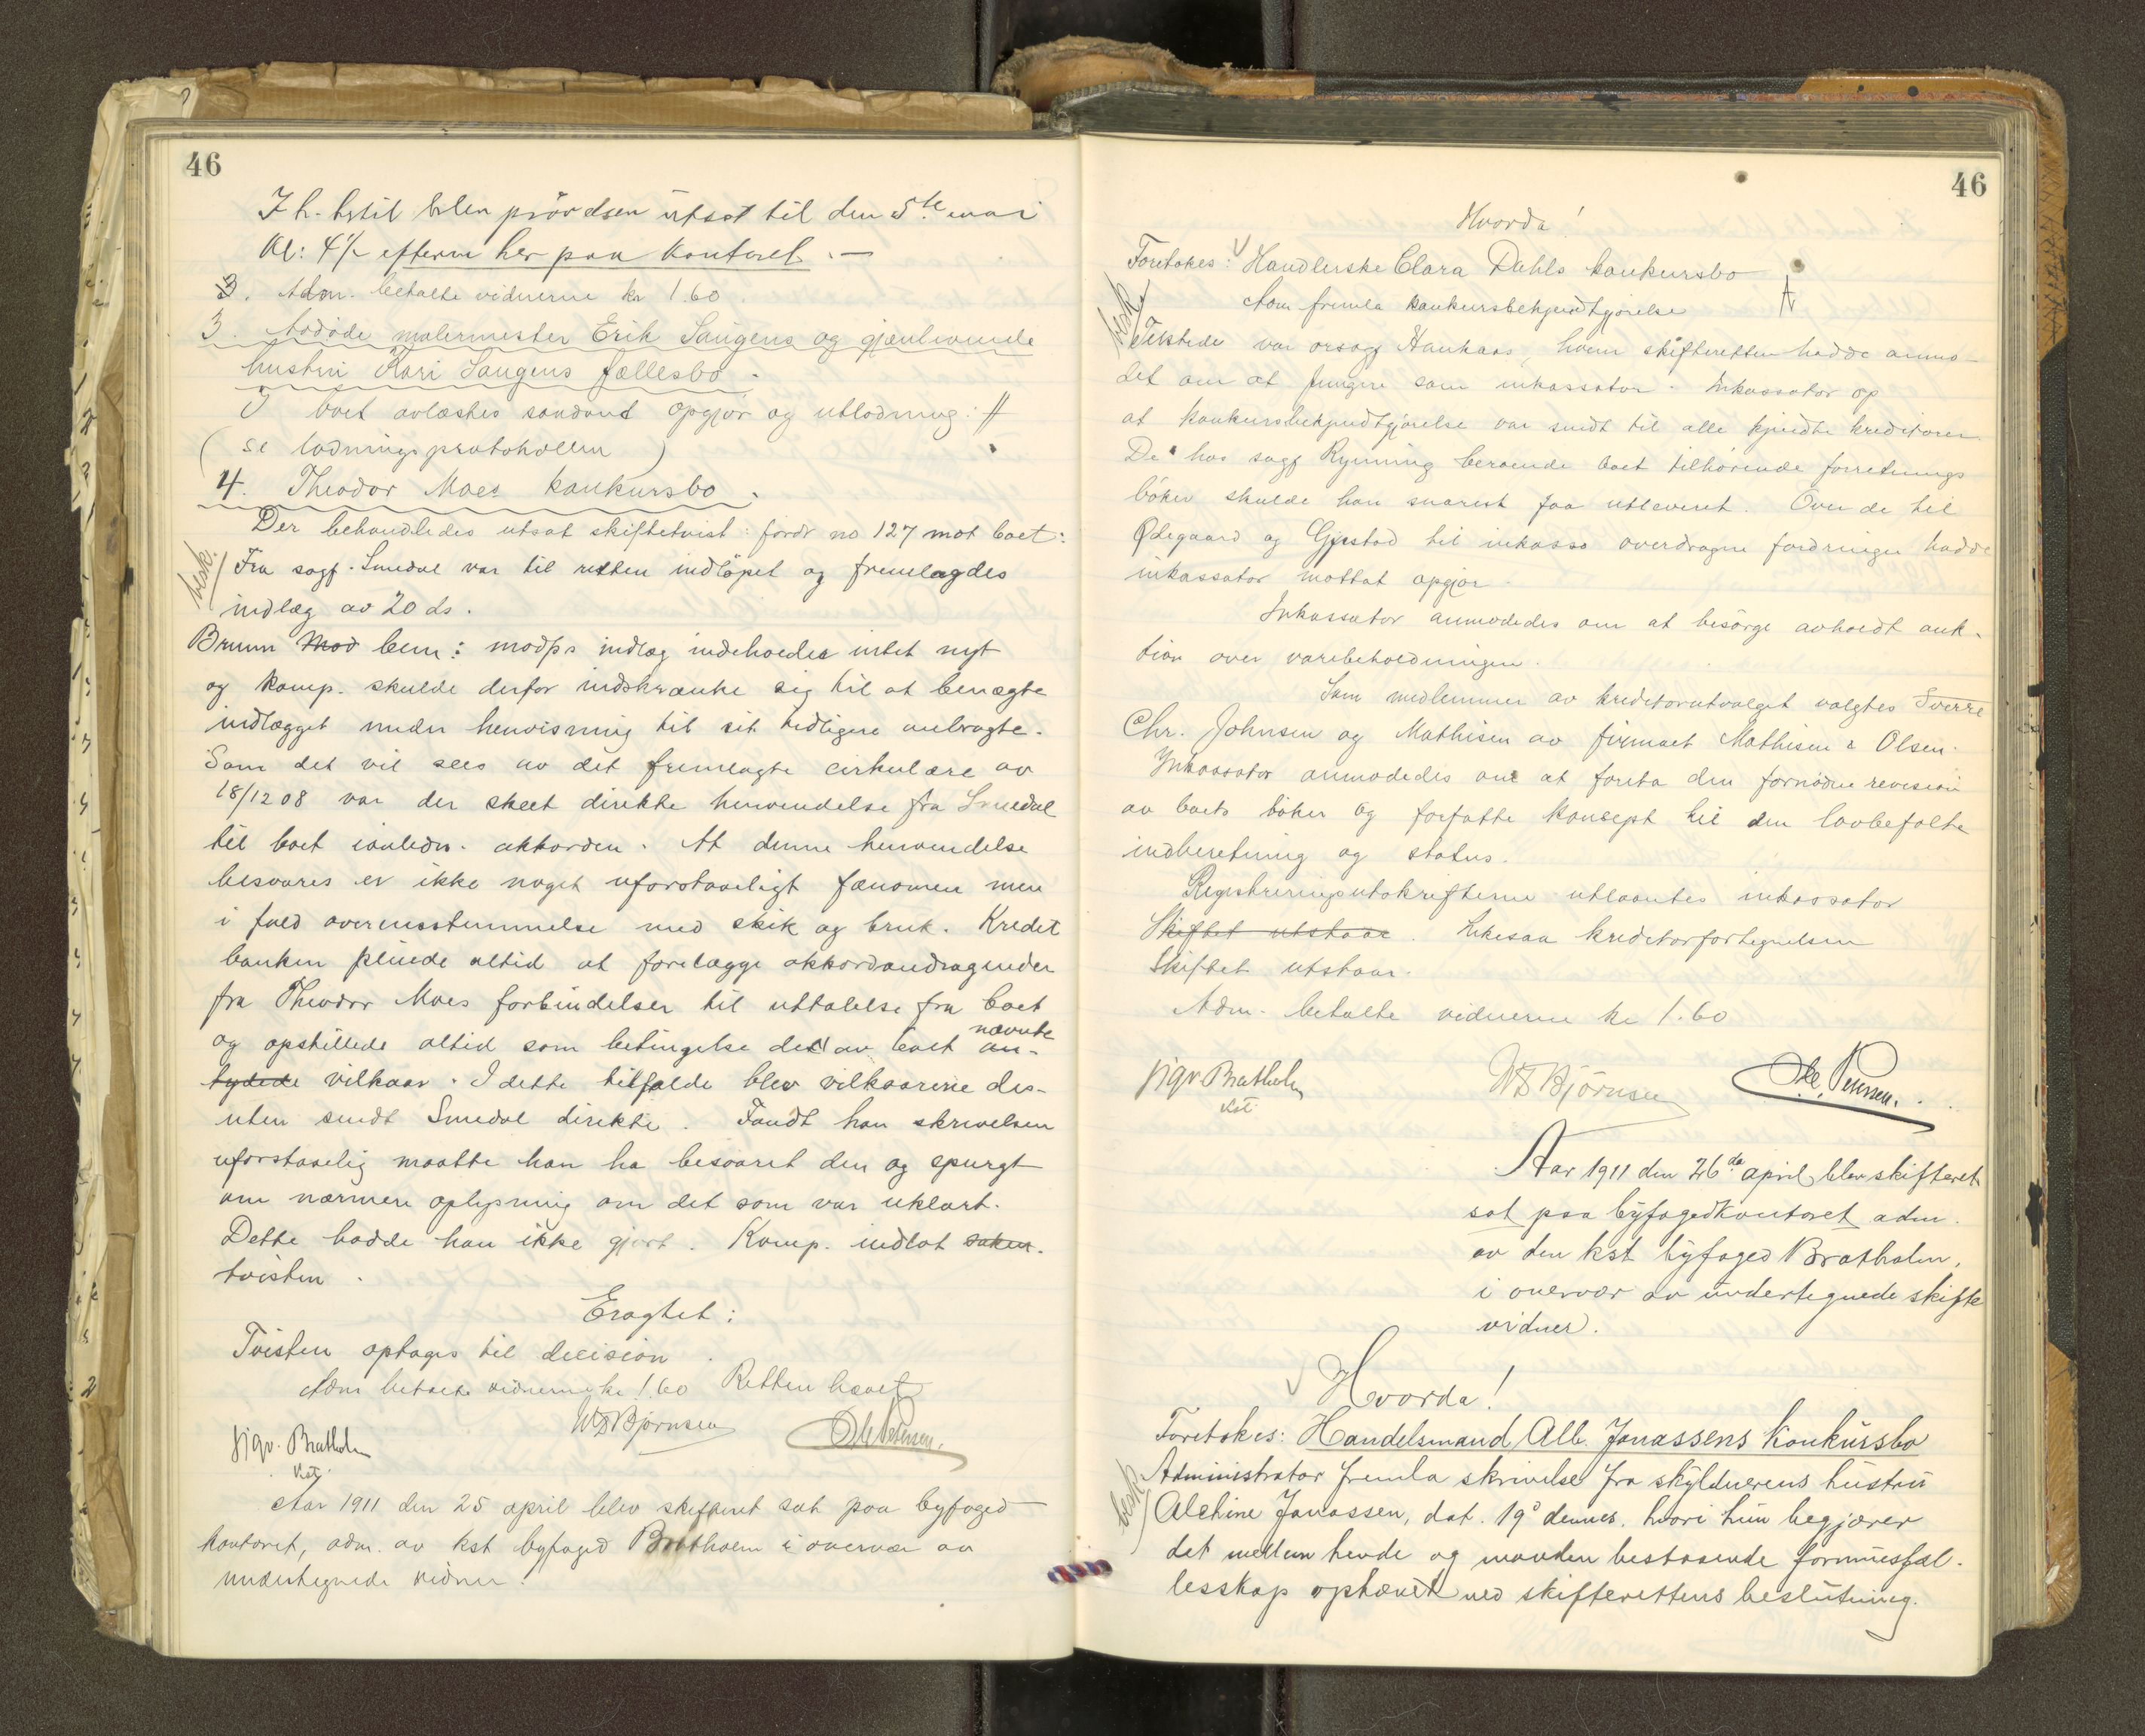 46
I h. hertil blev prøvelsen utsat til den 5te mai
Kl: 4½ efterm her paa Kontoret. —
3. Adm. betalte vidnerne kr 1.60.
3. Avdøde malermester Erik Saugens og gjenlevende
hustru Kari Saugens fællesbo.
I boet avlæstes saadant opgjør og utlodning: #
(se lodningsprotokollen)
4. Theodor Moes konkursbo.
Der behandledes utsat skiftetvist: fordr no 127 mot boet:
besk.
Fra sagf. Smedal var til retten indløpet og fremlagdes
indlæg av 20 ds.
Bruun Mod bem: modps indlæg indeholder intet nyt
og komp. skulde derfor indskrænke sig til at benægte
indlægget under henvisning til sit tidligere anbragte.
Som det vil sees av det fremlagte cirkulære av
18/12 08 var der skeet direkte henvendelse fra Smedal
til boet ianledn. akkorden. At denne henvendelse
besvares er ikke noget uforstaaeligt fænomen men
i fuld overensstemmelse med skik og bruk. Kredit
banken pleiede altid at forelægge akkordandragender
fra Theodor Moes forbindelser til uttalelse fra boet
og opstillede altid som betingelse de av boet an- nævnte
tydede vilkaar. I dette tilfælde blev vilkaarene des-
uten sendt Smedal direkte. Fandt han skrivelsen
uforstaaelig maatte han ha besvaret den og spurgt
om nærmere oplysning om det som var uklart.
Dette hadde han ikke gjort. Komp. indlot saken.
tvisten.
Eragtet:
Tvisten optages til decision.
Adm betalte vidnerne kr 1.60 Retten hævet
Sigv. Bratholm WBjørnsen Ole Petersen.
Kst.
Aar 1911 den 25 april blev skifteret sat paa byfoged
kontoret, adm. av kst byfoged Bratholm i overvær av
undertegnede vidner.
46
Hvorda!
Foretokes: Handlerske Clara Dahls konkursbo
Adm fremla konkursbekjendtgjørelse
besk
Tilstede var orsagf Haukaas, hvem skifteretten hadde anmo-
det om at fungere som inkassator. Inkassator op
at konkursbekjendtgjørelse var sendt til alle kjendte kreditorer
De hos sagf Rynning beroende boet tilhørende forretnings
bøker skulde han snarest faa utleveret. Over de til
Ødegaard og Gjestad til inkasso overdragne fordringer hadde
inkassator mottat opgjør.
Inkassator anmodedes om at besørge avholdt auk-
tion over varebeholdningen.
Som medlemmer av kreditorutvalget valgtes Sverre
Chr. Johnsen og Mathisen av firmaet Mathisen & Olsen.
Inkassator anmodedes om at foreta den fornødne revision
av boets bøker og forfatte konsept til den lovbefalte
indberetning og status.
Registreringsutskrifterne utlaantes inkassator
Skiftet utstaar. Likesaa kreditorfortegnelsen
Skiftet utstaar.
Adm. betalte vidnerne kr 1.60
Sigv. Bratholm WBjørnsen Ole Petersen.
Kst.
Aar 1911 den 26de april blev skifteret
sat paa byfogedkontoret adm.
av den kst byfoged Bratholm,
i overvær av undertegnede skifte
vidner.
Hvorda!
Foretokes: Handelsmand Alb. Jonassens Konkursbo
besk.
Administrator fremla skrivelse fra skyldnerens hustru
Alchine Jonassen, dat. 19o dennes. hvori hun begjærer
det mellem hende og manden bestaaende formuesfæl-
lesskap ophævet ved skifterettens beslutning.